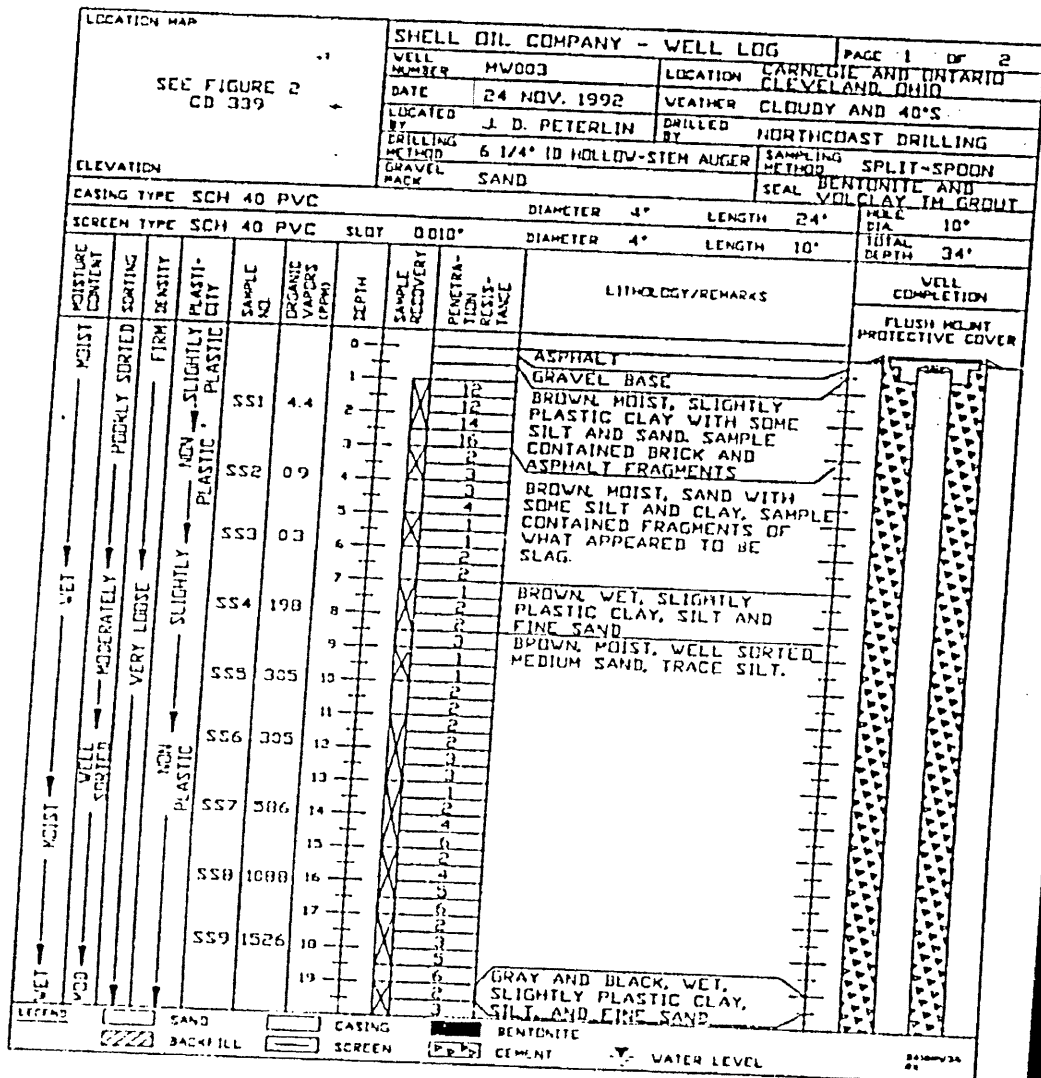 LOCATION MAP
SEE FIGURE 2
CD 339
ELEVATION
SHELL OIL COMPANY - WELL LOG
PAGE 1 OF 2
WELL NUMBER MW003
LOCATION CARNEGIE AND ONTARIO CLEVELAND, OHIO
DATE 24 NOV. 1992
WEATHER CLOUDY AND 40'S
LOCATED BY J. D. PETERLIN
DRILLED BY NORTHCOAST DRILLING
DRILLING METHOD 6 1/4" ID HOLLOW-STEM AUGER
SAMPLING METHOD SPLIT-SPOON
GRAVEL PACK SAND
SEAL BENTONITE AND VOLCLAY TM GROUT
CASING TYPE SCH 40 PVC DIAMETER 4" LENGTH 24' HOLE DIA. 10"
SCREEN TYPE SCH 40 PVC SLOT 0.010" DIAMETER 4" LENGTH 10' TOTAL DEPTH 34'
MOISTURE CONTENT
SORTING
DENSITY
PLASTICITY
SAMPLE NO.
ORGANIC VAPORS (PPM)
DEPTH
SAMPLE RECOVERY
PENETRA-
TION
RESIS-
TANCE
LITHOLOGY/REMARKS
WELL COMPLETION
FLUSH MOUNT
PROTECTIVE COVER
MOIST
WET
MOIST
WET
POORLY SORTED
MODERATELY
WELL SORTED
MOD
FIRM
VERY LOOSE
SLIGHTLY PLASTIC
NON PLASTIC
SLIGHTLY
NON PLASTIC
SS1 4.4
SS2 0.9
SS3 0.3
SS4 198
SS5 305
SS6 305
SS7 586
SS8 1088
SS9 1526
0
1
2
3
4
5
6
7
8
9
10
11
12
13
14
15
16
17
18
19
ASPHALT
GRAVEL BASE
BROWN, MOIST, SLIGHTLY
PLASTIC CLAY WITH SOME
SILT AND SAND. SAMPLE
CONTAINED BRICK AND
ASPHALT FRAGMENTS
BROWN, MOIST, SAND WITH
SOME SILT AND CLAY, SAMPLE
CONTAINED FRAGMENTS OF
WHAT APPEARED TO BE
SLAG.
BROWN, WET, SLIGHTLY
PLASTIC CLAY, SILT AND
FINE SAND
BROWN, MOIST, WELL SORTED
MEDIUM SAND, TRACE SILT.
GRAY AND BLACK, WET,
SLIGHTLY PLASTIC CLAY,
SILT, AND FINE SAND
LEGEND
SAND
CASING
BENTONITE
BACKFILL
SCREEN
CEMENT
WATER LEVEL